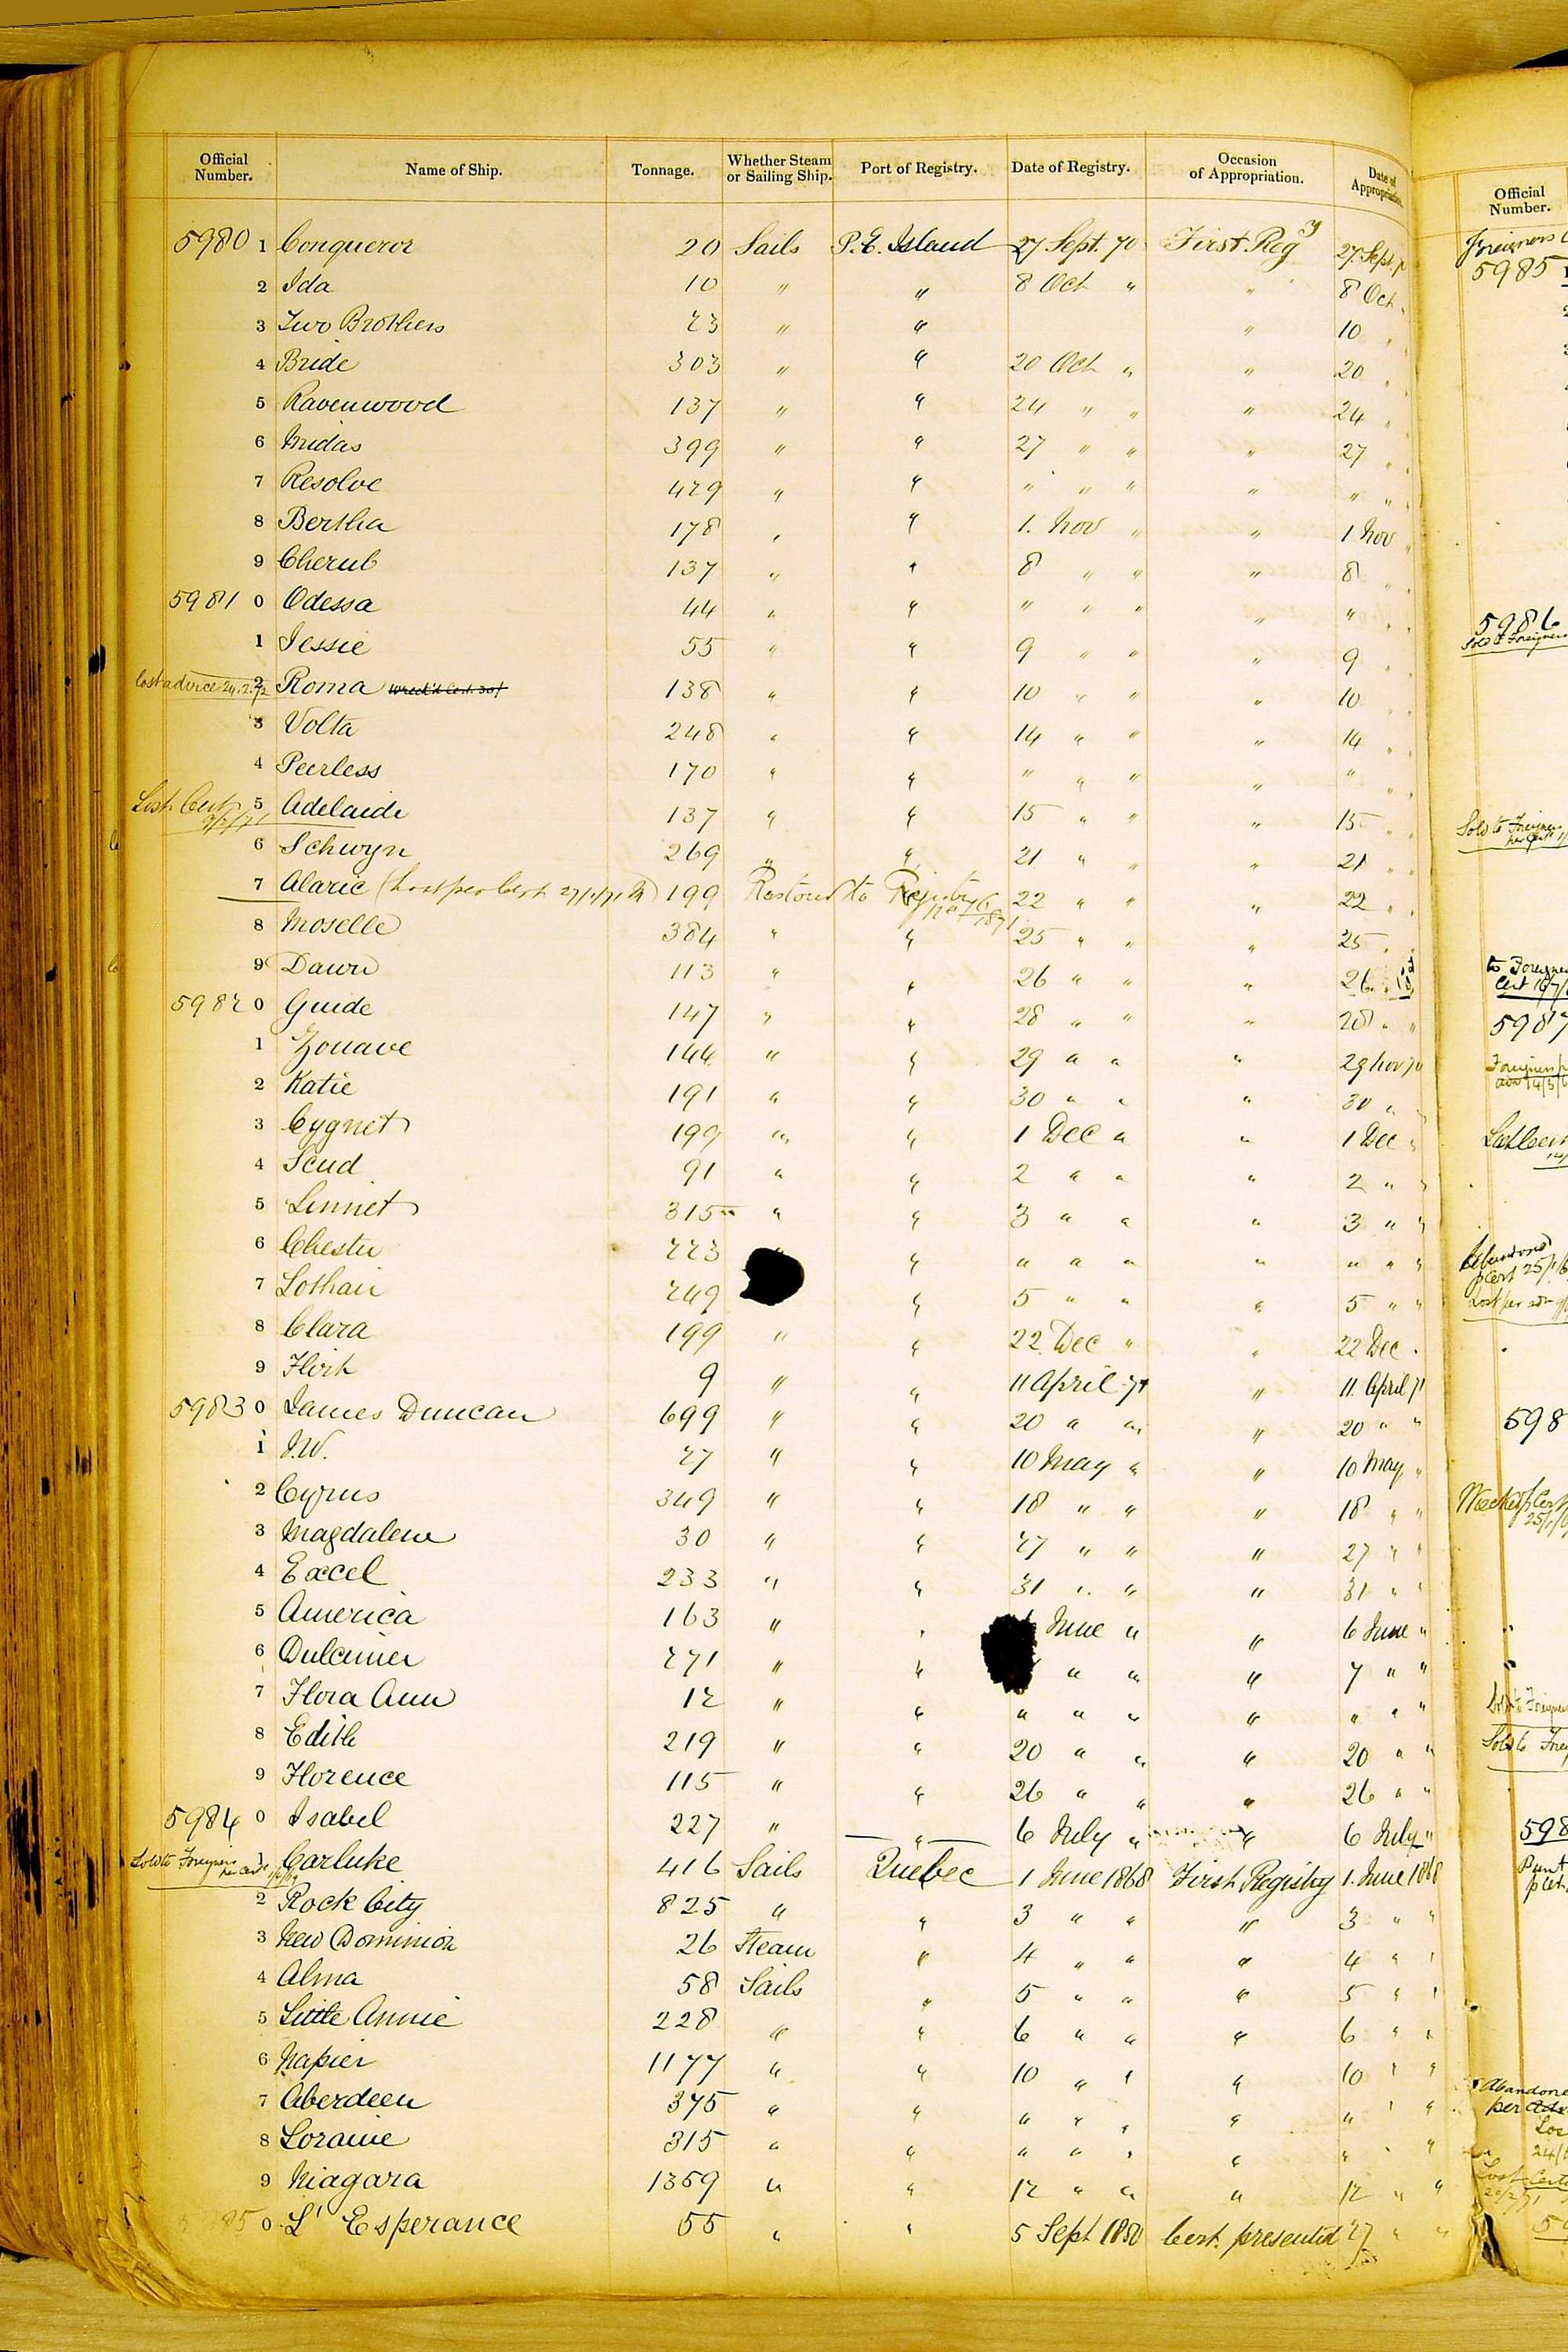 Official Number. Name of Ship. Tonnage. Whether Steam or Sailing Ship. Port of Registry. Date of Registry. Occasion of Appropriation. Date of Appropriation.
5980 1 Conqueror 20 Sails P.E. Island 27 Sept. 70 First Regy 27 Sept
2 Ida 10 " " 8 Oct " " 8 Oct
3 Two Brothers 23 " " " 10 "
4 Bride 303 " " 20 Oct " " 20 "
5 Ravenwood 137 " " 24 " " " 24 "
6 Midas 399 " " 27 " " " 27 "
7 Resolve 429 " " " " " " " "
8 Bertha 178 " " 1. Nov " " 1 Nov "
9 Cherub 137 " " 8 " " " 8 "
5981 0 Odessa 44 " " " " " " " "
1 Jessie 55 " " 9 " " " 9 "
Lost advice 24.2.72 2 Roma Wreck'd Cert. 138 " " 10 " " " 10 "
3 Volta 248 " " 14 " " " 14 "
4 Peerless 170 " " " " " " " "
Lost Cert 5 Adelaide 137 " " 15 " " " 15 "
6 Schwyn 269 " " 21 " " " 21 "
7 Alaric (Lost per Cert. 27/1/71) 199 Restored to Registry 1871 22 " " " 22 "
8 Moselle 384 " " 25 " " " 25 "
9 Dawn 113 " " 26 " " " 26 "
5982 0 Guide 147 " " 28 " " " 28 " "
1 Zouave 144 " " 29 " " " 29 Nov 70
2 Katie 191 " " 30 " " " 30 " "
3 Cygnet 199 " " 1 Dec " " 1 Dec "
4 Scud 91 " " 2 " " " 2 " "
5 Linnet 315 " " 3 " " " 3 " "
6 Chester 223 " " " " " " " " "
7 Lothair 249 " 5 " " " 5 " "
8 Clara 199 " " 22 Dec " " 22 Dec "
9 Flirt 9 " " 11 April 71 " 11 April 71
5983 0 James Duncan 699 " " 20 " " " 20 " "
1 J.W. 27 " " 10 May " " 10 May "
2 Cyrus 349 " " 18 " " " 18 " "
3 Magdalene 30 " " 27 " " " 27 " "
4 Excel 233 " " 31 " " " 31 " "
5 America 163 " " June " " 6 June "
6 Dulcimer 271 " " " " " 7 " "
7 Flora Ann 12 " " " " " " " " "
8 Edith 219 " " 20 " " " 20 " "
9 Florence 115 " " 26 " " " 26 " "
5984 0 Isabel 227 " " 6 July " " 6 July "
Sold to Foreigners per Cert 1 Carluke 416 Sails Quebec 1 June 1868 First Registry 1. June 1868
2 Rock City 825 " " 3 " " " 3 " "
3 New Dominion 26 Steam " 4 " " " 4 " "
4 Alma 58 Sails " 5 " " " 5 " "
5 Little Annie 228 " " 6 " " " 6 " "
6 Napier 1177 " " 10 " " " 10 " "
7 Aberdeen 375 " " " " " " " " "
8 Loraine 315 " " " " " " " " "
9 Niagara 1359 " " 12 " " " 12 " "
85 0 L' Esperance 55 " " 5 Sept 1850 Cert. presented 27 " "
Official Number.
Foreigners
5985
5986
Sold to Foreigners
Sold to Foreigners
per Cert
to Foreigne
Cert
5987
Foreigners
14/5/6
Abandoned
p Cert 25/1/6
Lost per
598
Wrecked p Cert
25/1/6
Sold to Foreigners
Sold to Fore
598
Abandone
per
Los
24/6
Lost Cert